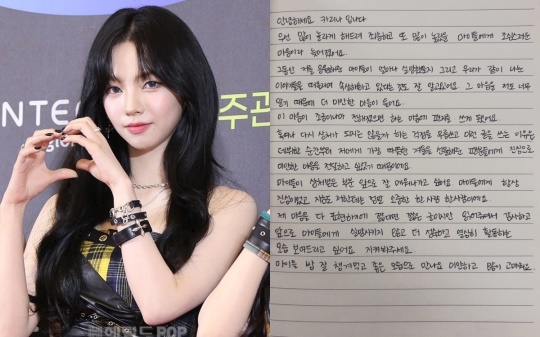 NTE
주관
헤럴드POP
안녕하세요 카리나 입니다
우선 많이 놀라게 해드려 죄송하고 또 많이 놀랐을 마이들에게 조심스러운
마음이라 늦어졌어요.
그동안 저를 응원해준 마이들이 얼마나 실망했을지 그리고 우리가 같이 나눈
이야기들을 떠올리며 속상해하고 있다는 것도 잘 알고있어요. 그 마음을 저도 너무
알기 때문에 더 미안한 마음이 들어요.
이 마음이 조금이나마 전해졌으면 하는 마음에 편지를 쓰게 됐어요.
혹여나 다시 상처가 되지는 않을까 하는 걱정을 무릅쓰고 이런 글을 쓰는 이유는
데뷔한 순간부터 저에게 가장 따뜻한 겨울을 선물해준 팬분들에게 진심으로
미안한 마음을 전달하고 싶었기 때문이에요
마이들이 상처받은 부분 앞으로 잘 메워나가고 싶어요 마이들에게 항상
진심이었고 지금도 저한테는 정말 소중한 한 사람 한사람이에요.
제 마음을 다 표현하기에 짧다면 짧은 글이지만 감사하고
앞으로 마이들에게 실망시키지 않고 더 성숙하고 열심히 활동하는
모습 보여드리고 싶어요 지켜봐주세요.
마이들 밥 잘 챙겨먹고 좋은 모습으로 만나요 미안하고 많이 고마워요.